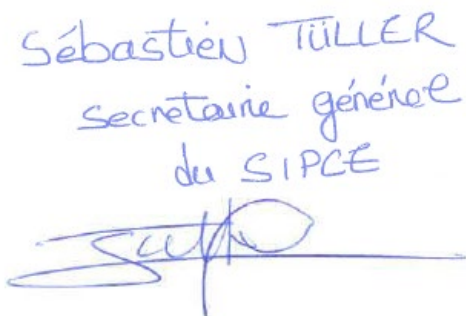 Sébastien TÜLLER
Secrétaire général
du SIPCE